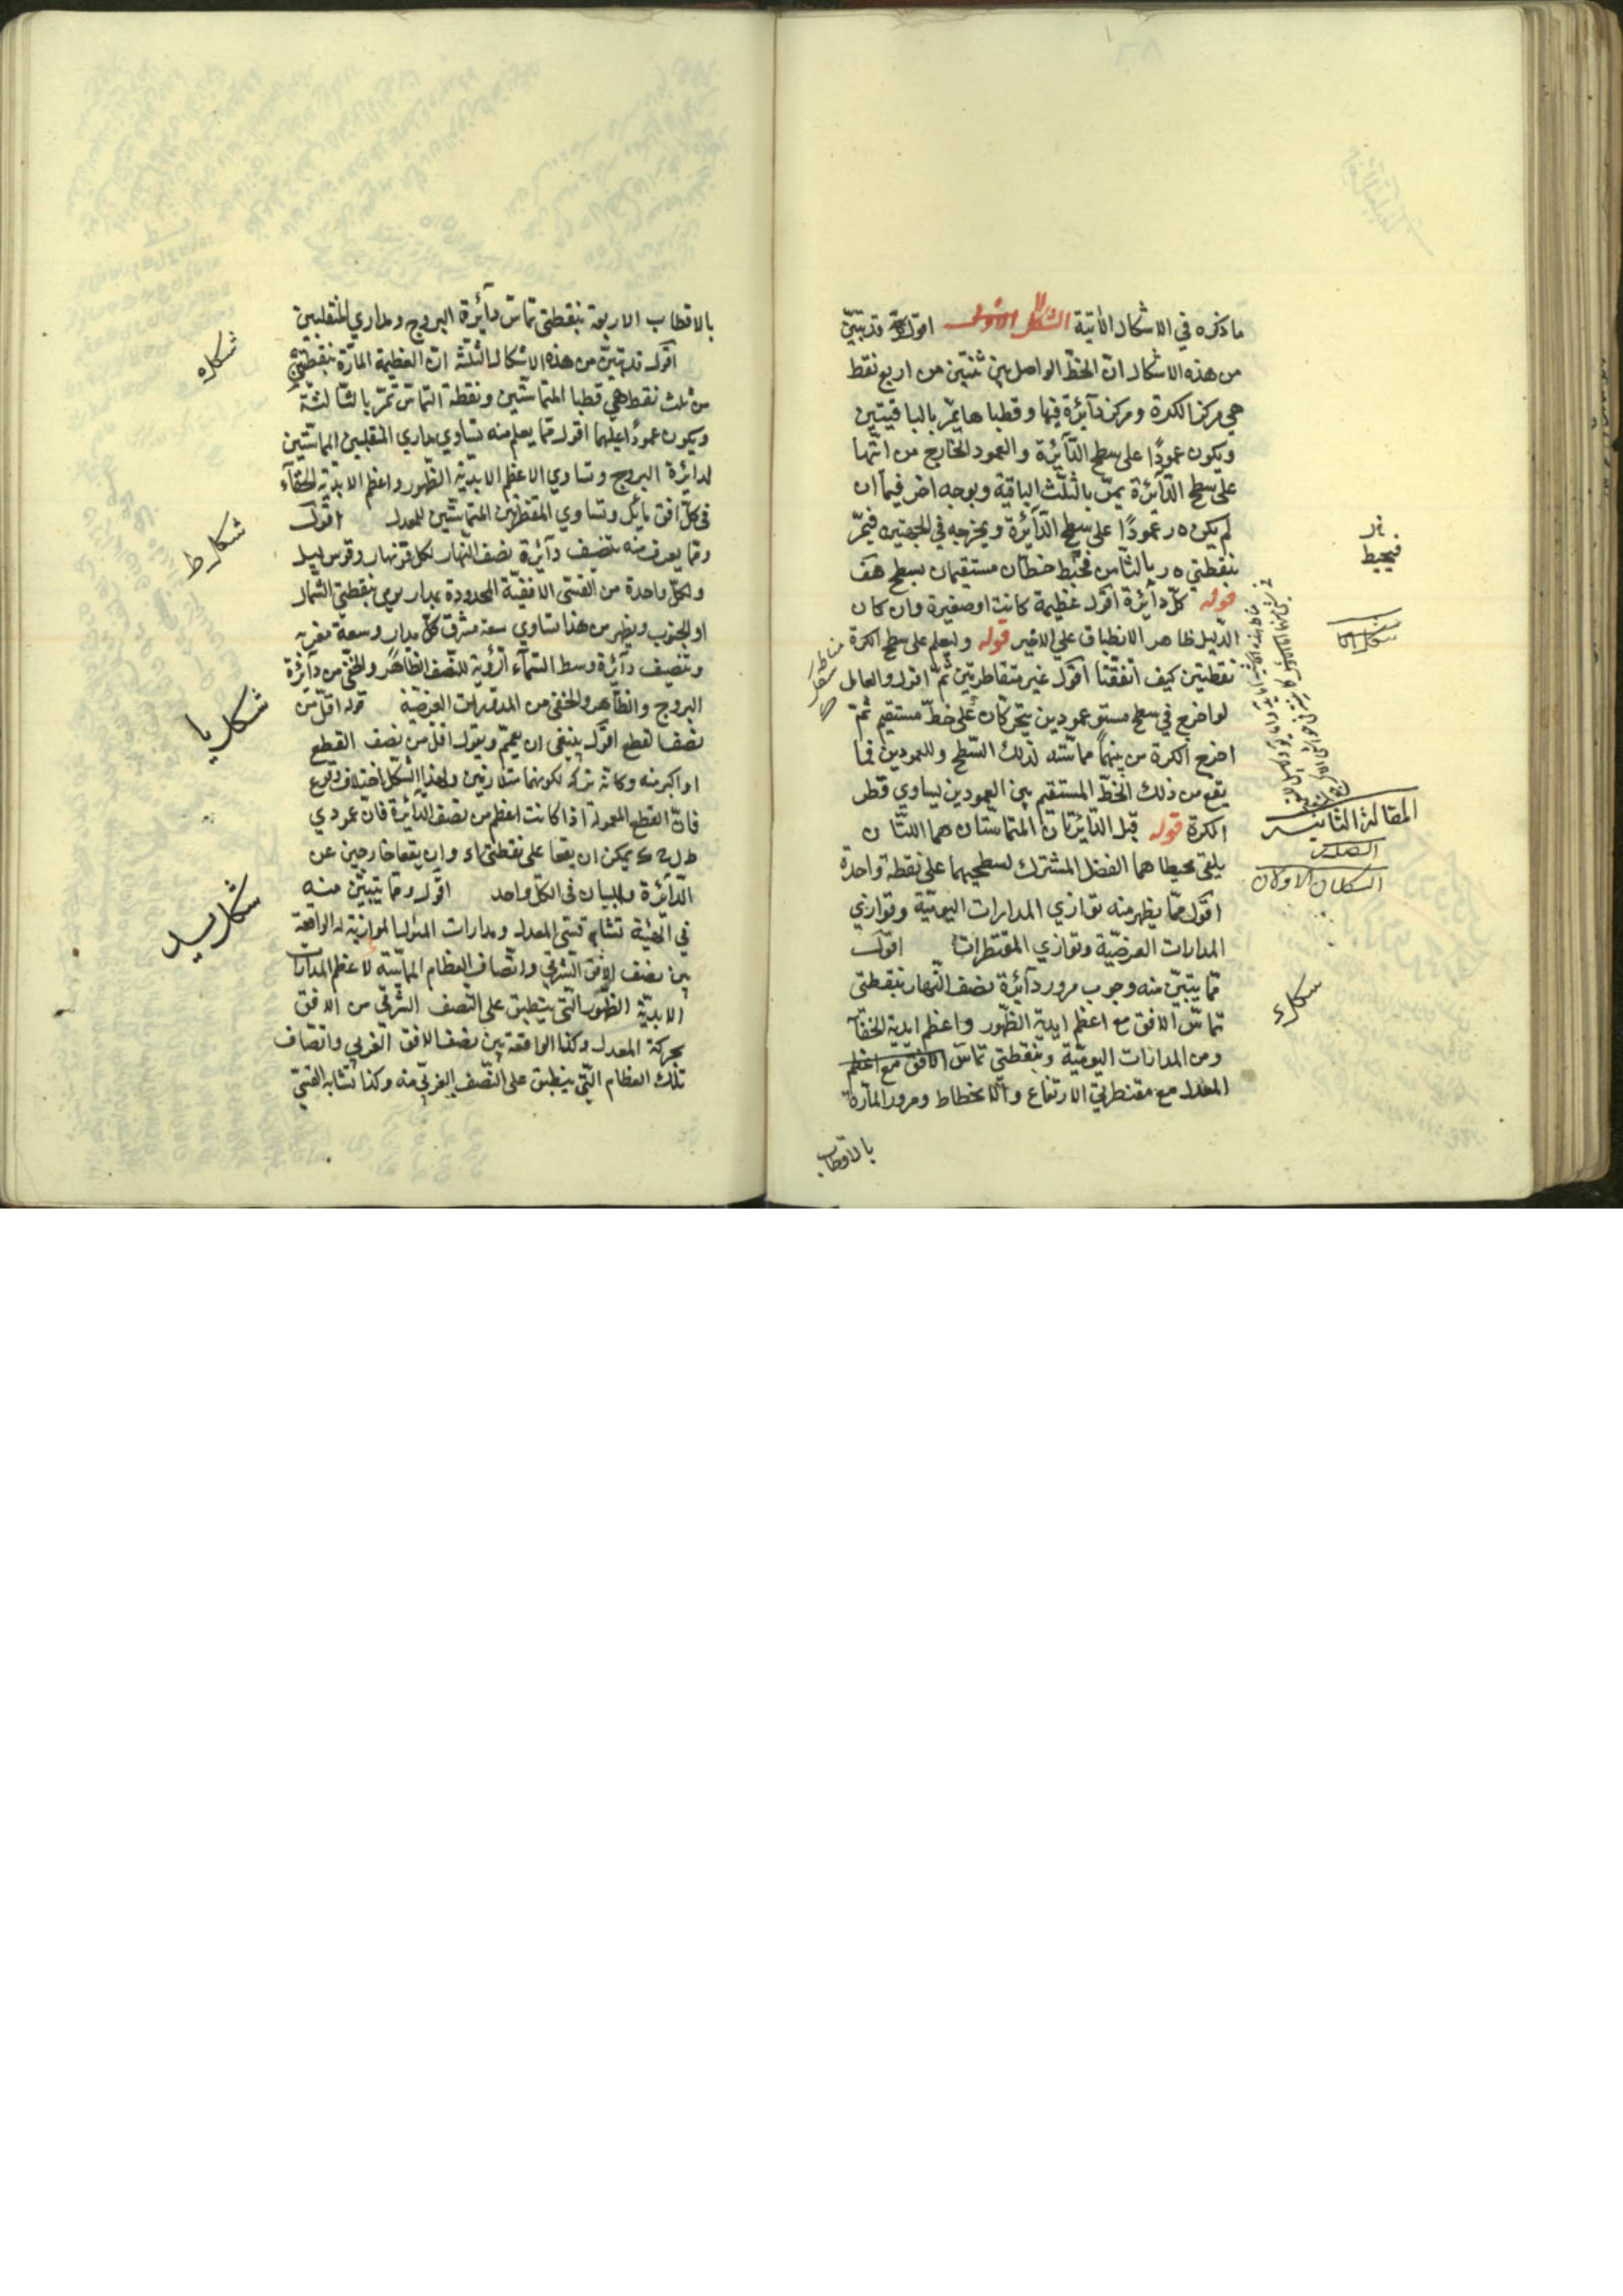 ما ذكره في الاشكال الآتية الشكل الاول اقول قد تبيّن
من هذه الاشكال انّ الخطّ الواصل بين ثنتين من اربع نقط
هي مركز الكرة ومركز دآئرة فيها وقطباها يمرّ بالباقيتين
ويكون عمودًا على سطح الدّآئرة والعمود الخارج من ايّها
على سطح الدّآئرة يمرّ بالثّلث الباقية وبوجه اخر فيما ان
لم يكن ه ر عمودًا على سطح الدّآئرة ويخرجه في الجهتين فيمرّ
بنقطتي ه ر بالثامن فيحيط خطّان مستقيمان بسطح هف
قوله كلّ دآئرة اقول عظيمة كانت او صغيرة وان كان
الدّليل ظاهر الانطباق على الاخير قوله وليعلم على سطح الكرة
نقطتين كيف اتفقتا اقول غير متقاطرتين ثمّ اقول والعامل
لو اخرج في سطح مستو عمودين يتحركان على خطّ مستقيم ثمّ
اخرج الكرة من بينهما مماسّته لذلك السّطح وللعمودين فما
يقع من ذلك الخطّ المستقيم بين العمودين يساوي قطر
الكرة قوله قبل الدّآئرتان المتماسّتان هما اللتان
يلقى محيطاهما الفضل المشترك لسطحيهما على نقطة واحدة
اقول ممّا يظهر منه توازي المدارات اليوميّة وتوازي
المدارات العرضيّة وتوازي المقنطرات اقول
ممّا يتبيّن منه وجوب مرور دآئرة نصف النّهار بنقطتي
تماسّ الافق مع اعظم ابديّة الظّهور واعظم ابديّة الخفآء
ومن المدارات اليوميّة وبنقطتي تماسّ الافق مع اعظم
المعدل مع مقنطرتي الارتفاع والانحطاط ومرور المارّة
بالاقطاب
فيحيط
المقالة الثانية
الصدر
الشكلان الاولان
شكل ء
بالاقطاب الاربعة بنقطتي تماسّ دآئرة البروج ومداري المنقلبين
اقول قد تبيّن من هذه الاشكال الثلثة انّ العظيمة المارّة بنقطتين
من ثلث نقط هي قطبا المتماسّتين ونقطة التماسّ تمرّ بالثّالثة
ويكون عمودًا عليهما اقول ممّا يعلم منه تساوي مداري المنقلبين المماسّتين
لدائرة البروج وتساوي الاعظم الابديّة الظّهور واعظم الابديّة الخفآء
في كلّ افق مآئل وتساوي المقنطرتين المتماسّتين للمعدل اقول
وممّا يعرف منه تنصيف دآئرة نصف النّهار لكل قوس نهار وقوس ليل
ولكلّ واحدة من القسيّ الافقيّة المحدودة بمدار يومي بنقطتي الشّمال
او الجنوب ويظهر من هذا تساوي سعة مشرق كلّ مدار وسعة مغربه
وتنصيف دآئرة وسط السّمآء الرّؤية للنّصف الظّاهر والخفيّ من دآئرة
البروج والظّاهر والخفي من المدارات العرضيّة قوله اقلّ من
نصف القطع اقول ينبغي ان يعمّم ويقول اقلّ من نصف القطع
او اكبر منه وكانّه تركه لكونهما متلازمين ولهذا الشّكل اختلاف وقوع
فانّ القطع المعمولة اذا كانت اعظم من نصف الدّآئرة فانّ عمودي
يمكن ان يقعا على نقطتي ا ء وان يقعا خارجين عن
الدّآئرة والبيان في الكلّ واحد اقول وممّا يتبيّن منه
في الهيئة تشابه قسيّ المعدل ومدارات الميول الموازية له الواقعة
بين نصف الافق الشّرقي وانصاف العظام المماسّة لاعظم المدارات
الابديّة الظّهور الّتي ينطبق على النّصف الشّرقي من الافق
بحركة المعدل وكذا الواقعة بين نصف الافق الغربي وانصاف
تلك العظام الّتي ينطبق على النّصف الغربيّ منه وكذا تشابه القسيّ
شكل ه
شكل ط
شكل يا
شكل يب